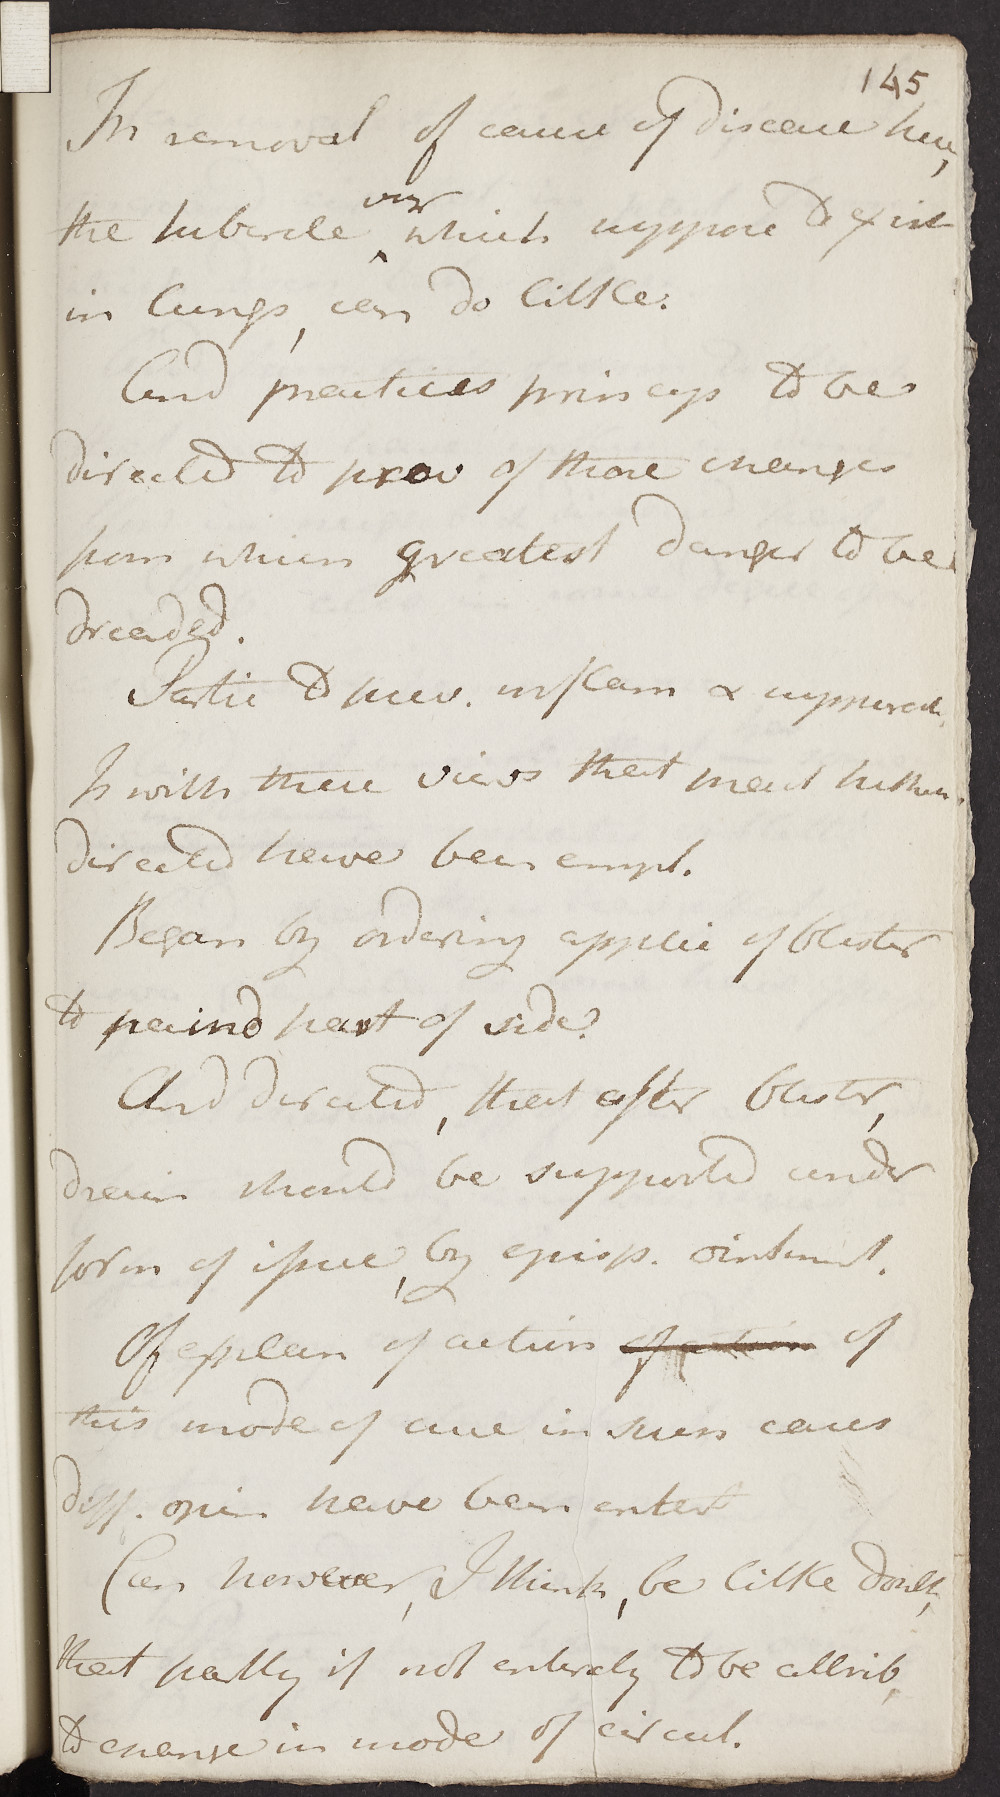 145
In removal of cause of disease here,
the tubercle which suppose to exist
in lungs, can do little.
And practices princip to be
directed to prev of those changes
from which greatest danger to be
dreaded.
Partic to prev. inflam & suppurat.
Is with these views that med hitherto
directed have been empl.
Began by ordering applic of blister
to paind part of side.
And directed, that after blister,
drain should be supported under
form of issue, by episp. ointment.
Of explan of action of action of
this mode of cure in such cases
diff. opin have been entert
Can however, I think, be little doubt,
that partly if not entirely to be attrib,
to change in mode of circul.